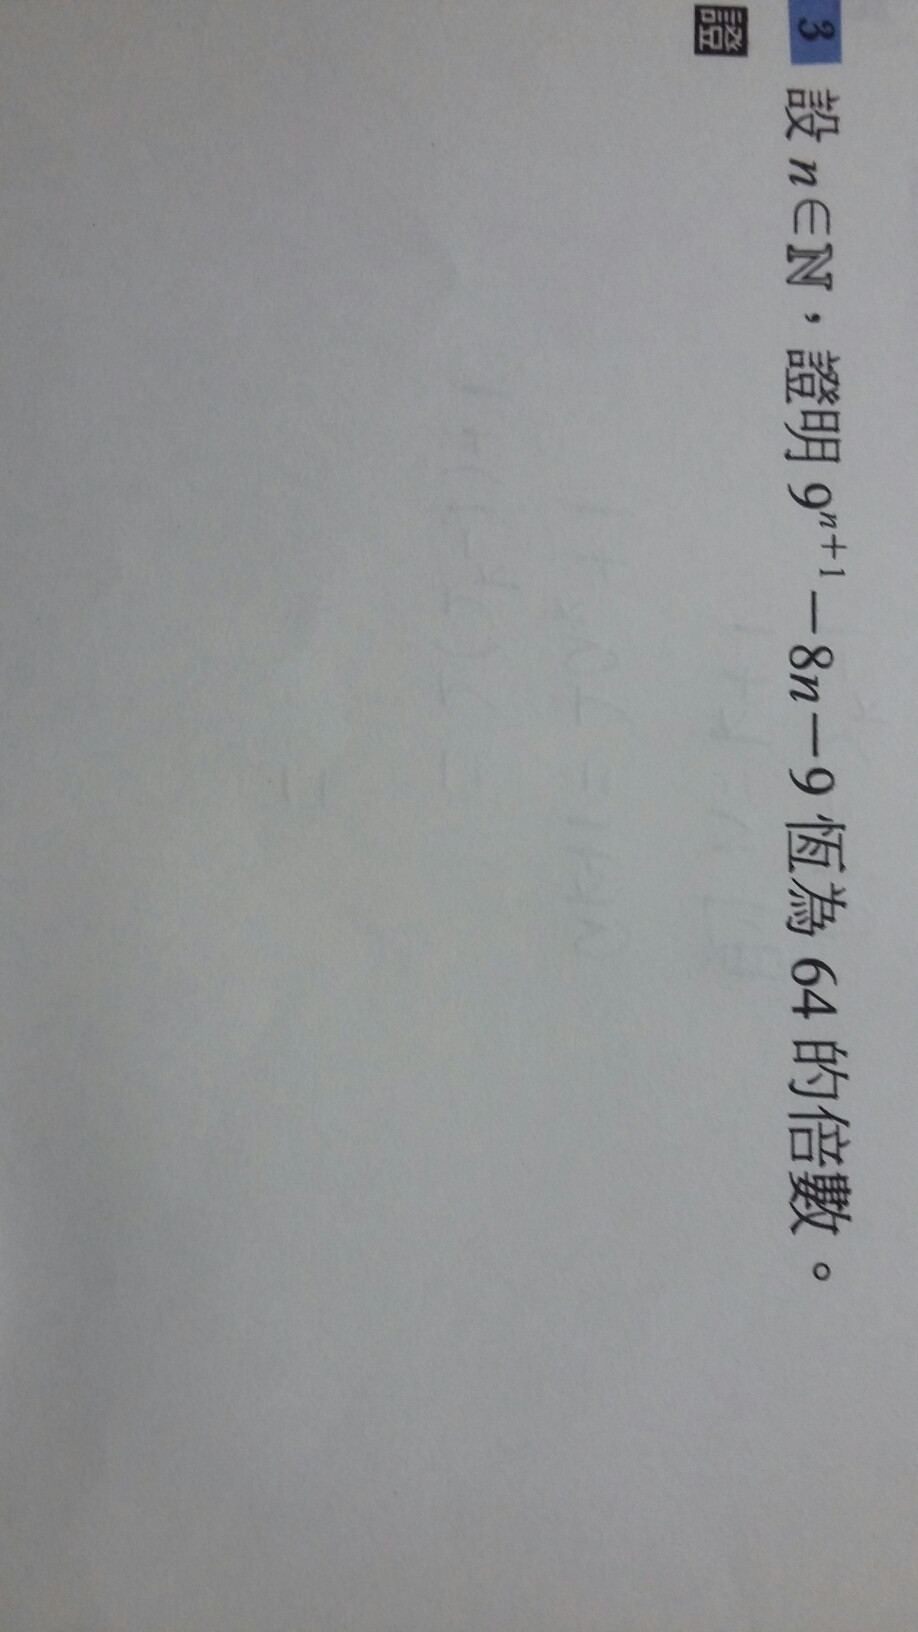 3 設 n∈ℕ，證明 9ⁿ⁺¹－8n－9 恆為 64 的倍數。
證